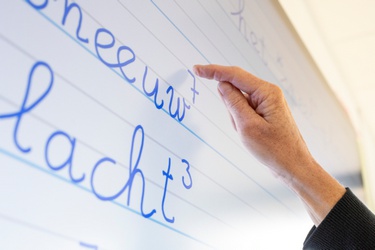 sneeuw⁷
lacht³